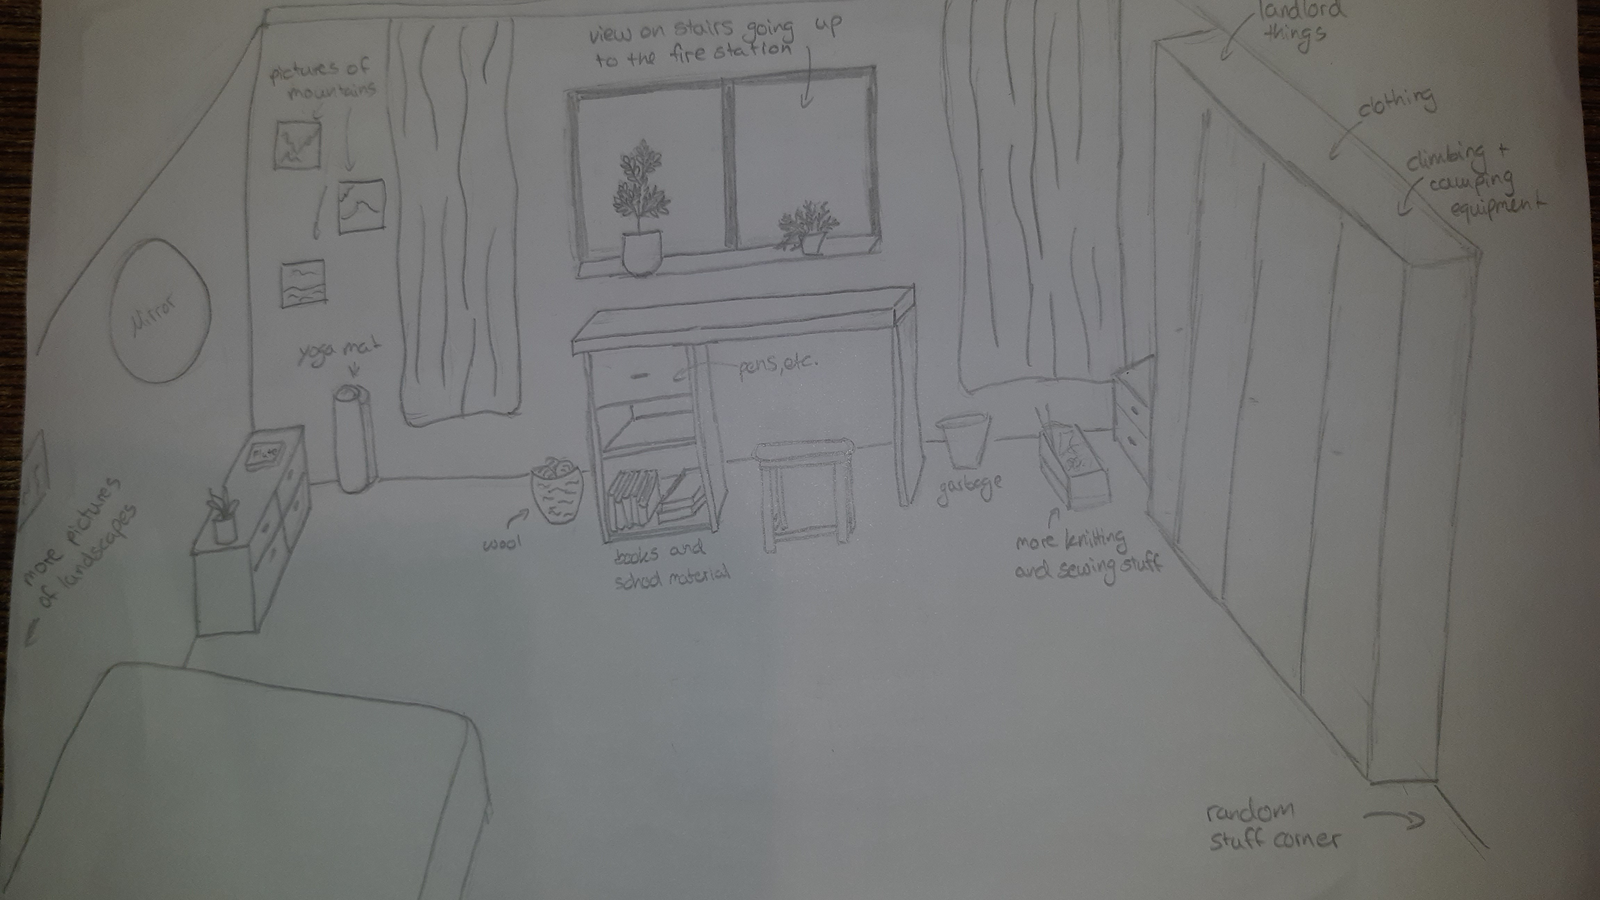 landlord
things
view on stairs going up
to the fire station
pictures of
mountains
clothing
climbing +
camping
equipment
Mirror
yoga mat
pens, etc.
more pictures
of landscapes
wool
books and
school material
garbage
more knitting
and sewing stuff
random
stuff corner